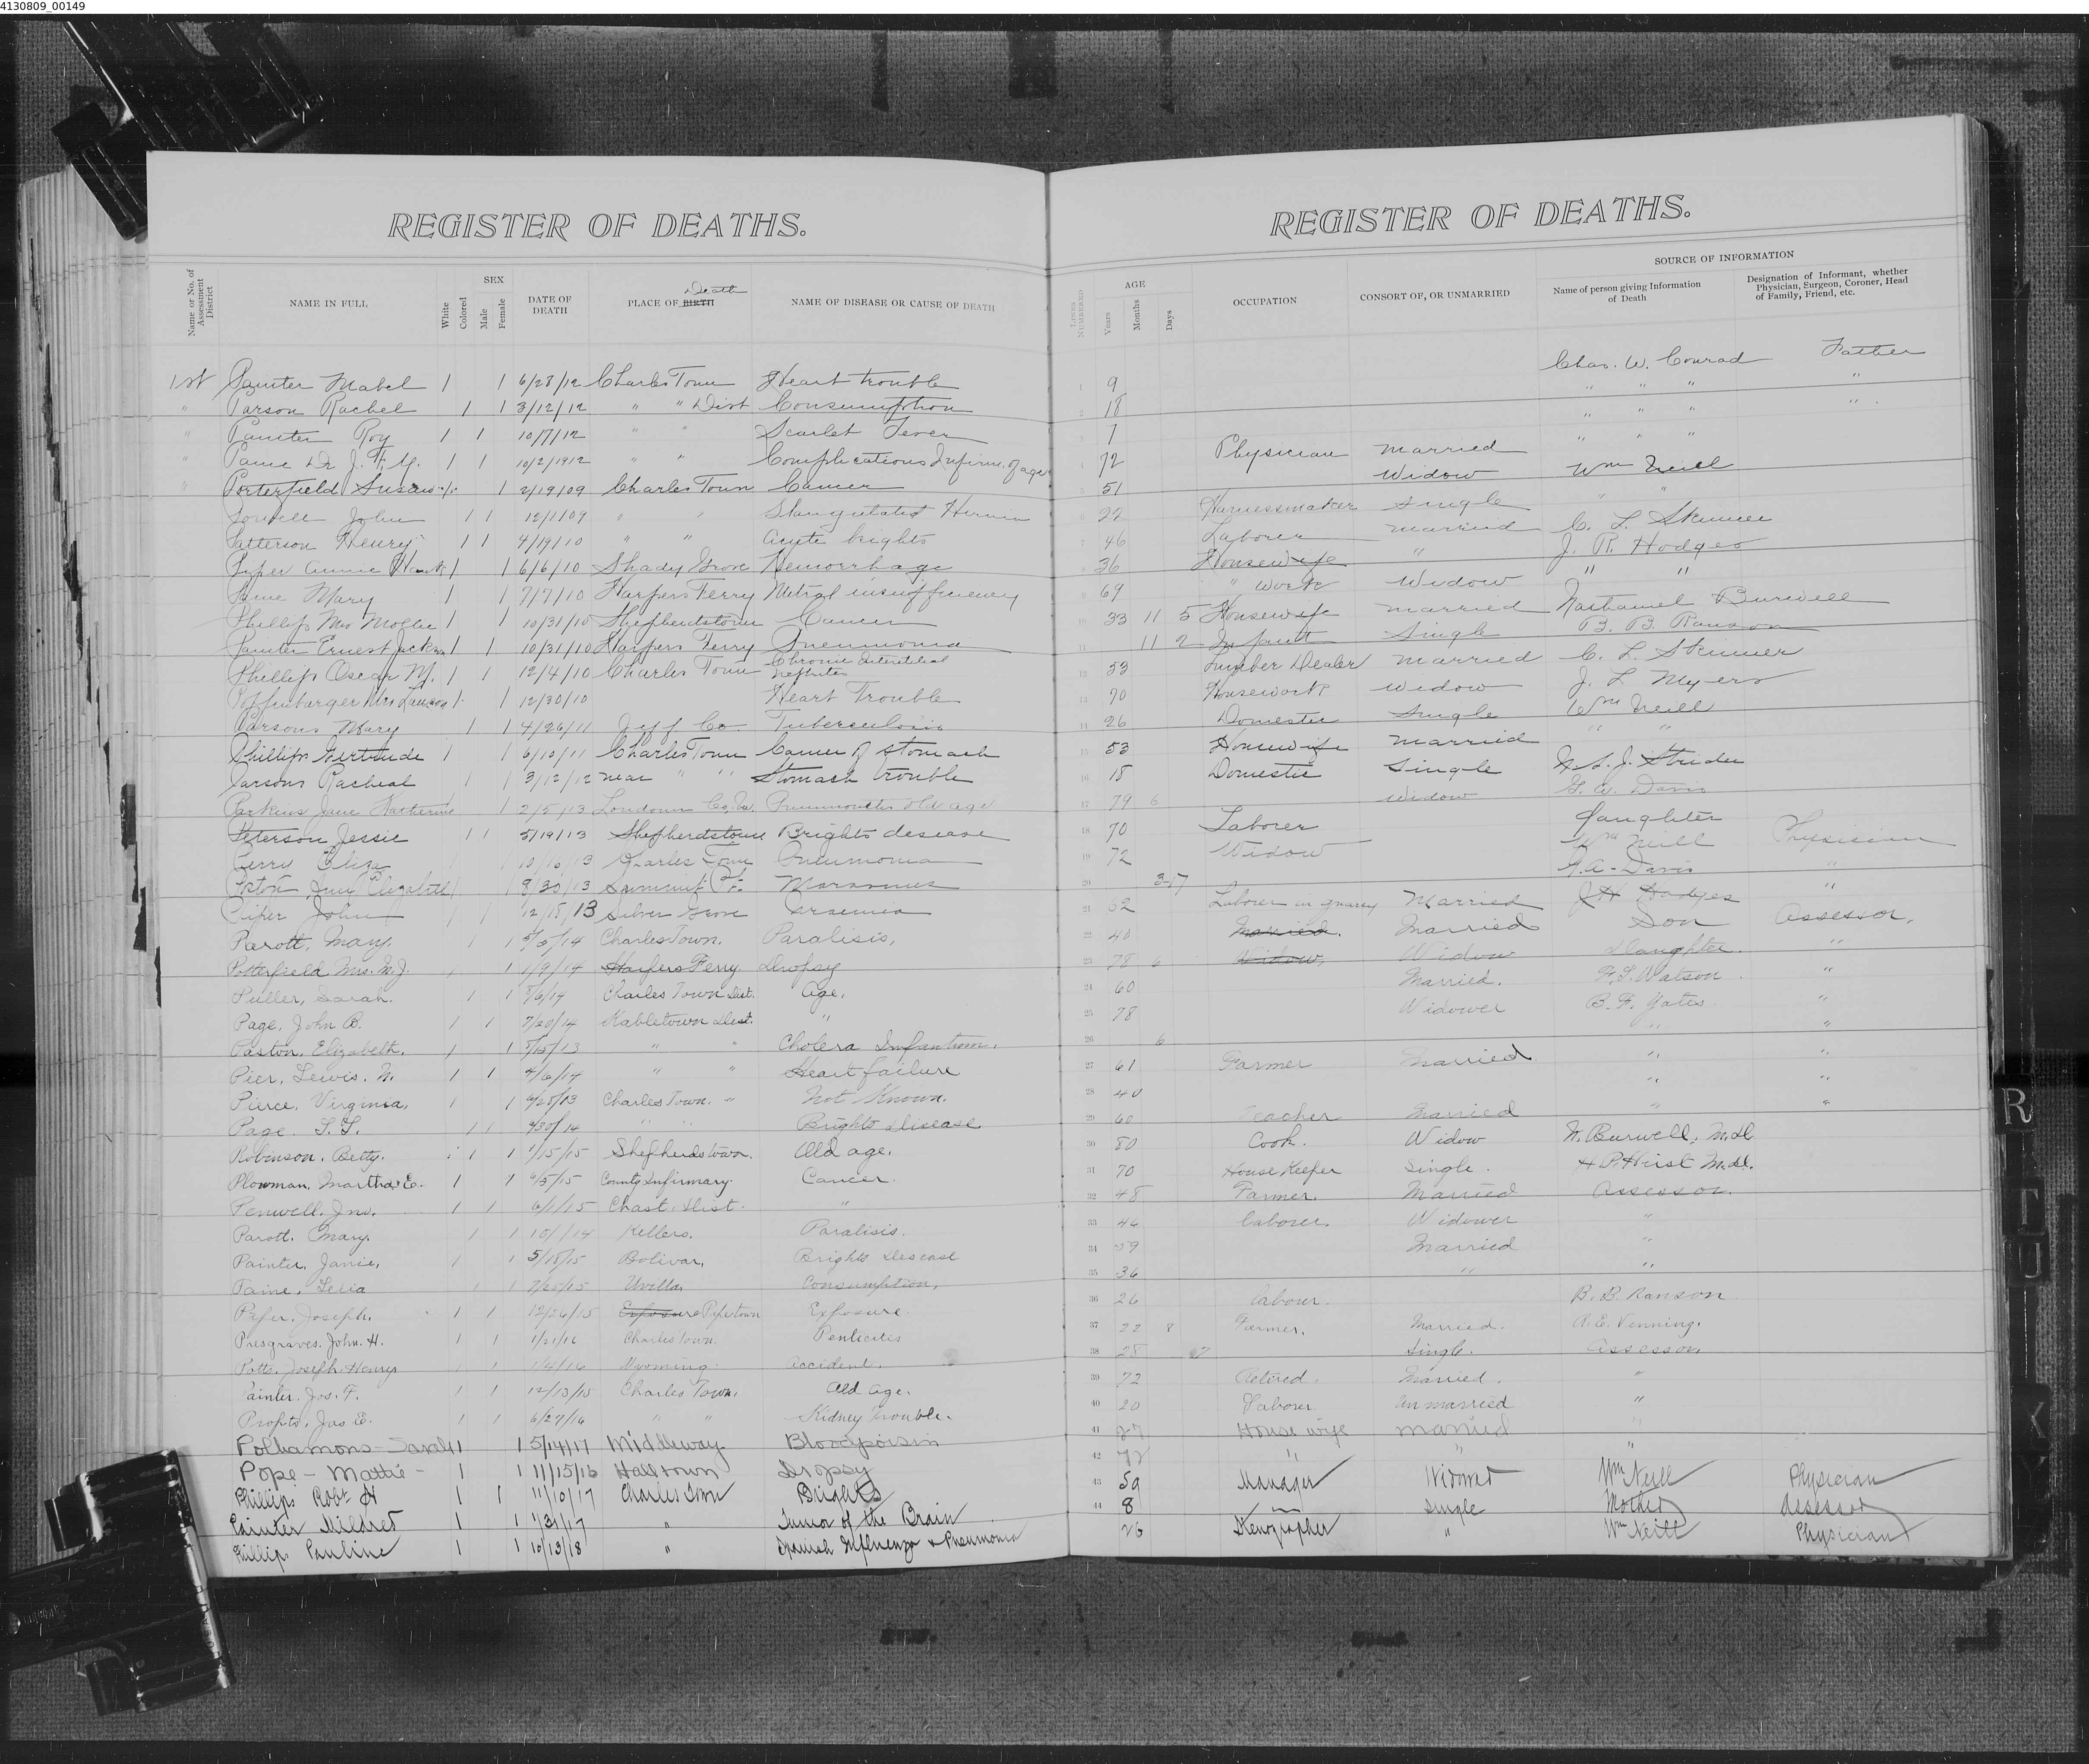 4130809_00149
REGISTER OF DEATHS.
Name or No. of Assessment District
NAME IN FULL
White
Colored
SEX
Male
Female
DATE OF DEATH
PLACE OF BIRTH Death
NAME OF DISEASE OR CAUSE OF DEATH
1st Painter Mabel 1 1 6/28/12 Charles Town Heart trouble
" Parson Rachel 1 1 3/12/12 " " Dist Consumption
" Painter Roy 1 1 10/7/12 " " Scarlet Fever
" Paine Dr J. F. 1 1 10/2/1912 " " Complications Infirm. of age
" Porterfield Susan 1 2/19/09 Charles Town Cancer
John 1 1 12/1/09 " " Stangulated Hernia
Patterson Henry 1 1 4/19/10 " " Acute brights
Annie 1 1 6/6/10 Shady Grove Hemorrhage
Mary 1 1 7/7/10 Harpers Ferry Mitral insufficiency
Phillips Mrs Mollie 1 1 10/31/10 Shepherdstown Cancer
Painter Ernest Jackson 1 1 10/31/10 Harpers Ferry Pneumonia
Phillips Oscar M. 1 1 12/4/10 Charles Town Chronic Interstitial Nephrites
Poffinbarger Mrs 1 1 12/30/10 Heart Trouble
Parsons Mary 1 1 4/26/11 Jeff Co. Tuberculosis
Phillips Gertrude 1 1 6/10/11 Charles Town Cancer of stomach
Parsons Racheal 1 1 3/12/12 near " " Stomach trouble
Perkins Jane Katherine 1 2/5/13 Loudoun Co, Va. Pneumonia old age
Peterson Jessie 1 1 5/19/13 Shepherdstown Brights desease
Perry Eliza 10/10/13 Charles Town Pneumonia
Poston Elizabeth 1 1 8/30/13 Summit Pt. Marasmus
Piper John 1 1 12/15/13 Silver Grove
Parott, Mary. 1 1 5/5/14 Charles Town. Paralisis,
Potterfield Mrs. M. J. 1 1 1/9/14 Harpers Ferry Dropsy
Puller, Sarah. 1 1 5/6/14 Charles Town Dist. Age,
Page, John B. 1 1 7/20/14 Kabletown Dist. "
Paston, Elizabeth, 1 1 5/15/13 " " Cholera Infantum.
Pier, Lewis. N. 1 1 4/6/14 " " Heart failure
Pierce, Virginia, 1 1 4/25/13 Charles Town. " Not Known.
Page. 1 1 4/30/14 " " Brights disease
Robinson, Betty. 1 1 1/15/15 Shepherdstown. Old age.
Plowman, Martha E. 1 1 4/5/15 County Infirmary. Cancer.
Penwell, Jno. 1 1 6/1/15 Chast. Dist. "
Parott, Mary. 1 1 10/1/14 Kellers. Paralisis.
Painter, Janie, 1 1 5/18/15 Bolivar, Brights Desease
Paine, Lelia 1 1 7/20/15 Uvilla, Consumption,
Pifer, Joseph. 1 1 12/26/15 Exposure Pipertown Exposure.
Presgraves. John. H. 1 1 1/21/16 Charles Town. Penticites
Potts, Joseph Henry 1 1 1/4/16 Wyoming. Accident.
Painter. Jos. F. 1 1 12/13/15 Charles Town, Old Age.
Propts, Jas E. 1 1 6/27/16 " " Kidney Trouble.
Polhamons - Sarah 1 1 5/14/17 Middleway Bloodpoisin
Pope - Mattie - 1 1 11/15/16 Halltown Dropsy
Phillips Robt H 1 1 11/10/17 Charles Town Brights
Painter Mildred 1 1 1/31/17 " Tumor of the Brain
Phillips Pauline 1 1 10/13/18 " Spanish Influenza & Pneumonia
REGISTER OF DEATHS.
LINES NUMBERED
AGE
Years
Months
Days
OCCUPATION
CONSORT OF, OR UNMARRIED
SOURCE OF INFORMATION
Name of person giving Information of Death
Designation of Informant, whether Physician, Surgeon, Coroner, Head of Family, Friend, etc.
Chas. W. Conrad Father
1 9 " " " "
2 18 " " " "
1 " " "
4 72 Physician Married
5 51 Widow Wm Neill
6 22 Harnessmaker Single " "
7 46 Laborer Married C. L. Skinner
8 36 Housewife " J. R. Hodges
9 69 " Work Widow " "
10 33 11 5 Housewife Married Nathaniel Burwell
11 11 2 Infant Single B. B. Ranson
12 53 Lumber Dealer Married C. L. Skinner
13 70 Housework Widow J. L Myers
14 26 Domestic Single Wm Neill
15 53 Housewife Married " "
16 18 Domestic Single Strider
17 79 6 Widow G. W. Davis
18 70 Laborer Daughter
19 72 Widow Wm Neill Physician
20 3-17 Davis "
21 62 Laborer in quarry Married Hodges "
22 40 Married. Married Son Assessor,
23 78 6 Widow, Widow Daughter. "
24 60 Married. Watson "
25 78 Widower B. F. Yates "
26 6 " "
27 61 Farmer Married " "
28 40 " "
29 60 Teacher Married " "
30 80 Cook. Widow N. Burwell, M.D.
31 70 House Keeper Single. H P. Hirst M.D.
32 48 Farmer. Married Assessor.
33 46 Laborer Widower "
34 59 Married "
35 36 " "
36 26 Labour. B. B. Ranson
37 22 8 Farmer, Married. R. E. Venning.
38 28 Single. Assessor,
39 72 Retired. Married. "
40 20 Labour Unmarried "
41 27 House wife Married "
42 72 " " "
43 59 Manager Widowed Wm Neill Physician
44 8 ~ Single Mother Assessor
26 Stenographer " Wm Neill Physician